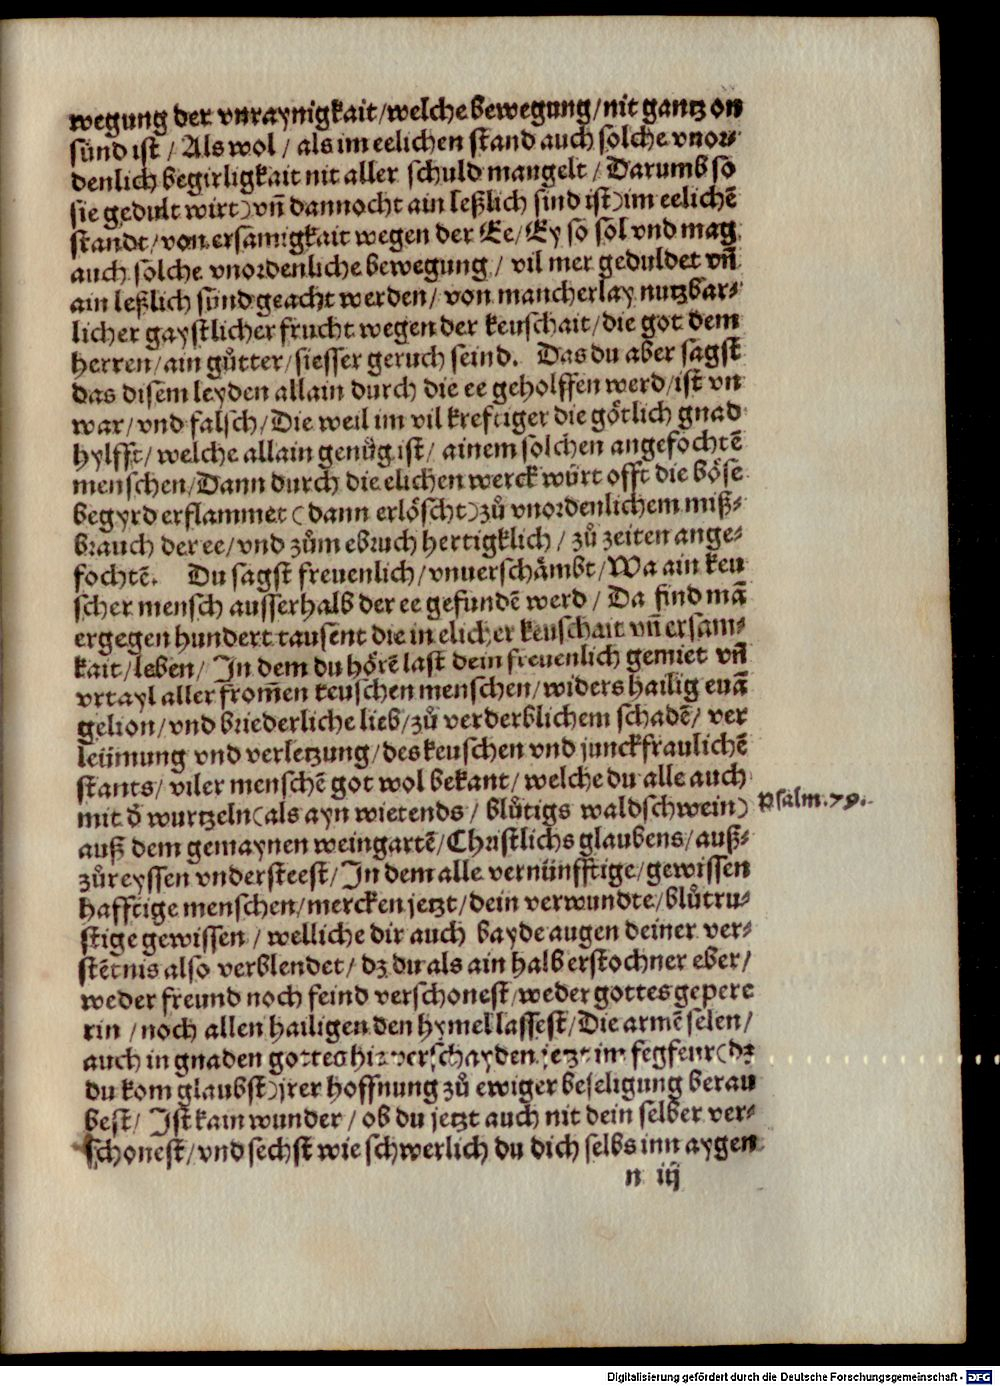 wegung der vnraynigkait/welche bewegung/nit gantz on
sünd ist / Als wol / als im eelichen stand auch solche vnor⸗
denlich begirligkait nit aller schuld mangelt / Darumb so
sie gedult wirt) vñ dannocht ain leßlich sünd ist) im eelichẽ
standt/von ersamigkait wegen der Ee/Ey so sol vnd mag
auch solche vnordenliche bewegung / vil mer geduldet vñ
ain leßlich sünd geacht werden/ von mancherlay nutzbar⸗
licher gaystlicher frucht wegen der keuschait/die got dem
herren/ain gůtter/siesser geruch seind. Das du aber sagst
das disem leyden allain durch die ee geholffen werd/ist vn
war/vnd falsch/Die weil im vil kreftiger die götlich gnad
hylfft/welche allain genůg ist/ ainem solchen angefochtẽ
menschen/Dann durch die elichen werck würt offt die böse
begyrd erflammet (dann erlöscht) zů vnordenlichem miß⸗
brauch der ee/vnd zům ebruch hertigklich / zů zeiten ange⸗
fochtẽ. Du sagst freuenlich/vnuerschämbt/Wa ain keu
scher mensch ausserhalb der ee gefundẽ werd / Da find mã
ergegen hundert tausent die in elicher keuschait vñ ersam⸗
kait/leben/ In dem du hörẽ last dein freuenlich gemiet vñ
vrtayl aller from̃en keuschen menschen/widers hailig euã
gelion/vnd briederliche lieb/zů verderblichem schadẽ/ ver
leümung vnd verletzung/des keuschen vnd junckfraulichẽ
stants/viler menschẽ got wol bekant/welche du alle auch
mit d̃ wurtzeln(als ayn wietends / blůtigs waldschwein)
Psalm.79.
auß dem gemaynen weingartẽ/Christlichs glaubens/auß⸗
zůreyssen vndersteest/In dem alle vernünfftige/gewissen
hafftige menschen/mercken jetzt/dein verwundte/blůtru⸗
stige gewissen / welliche dir auch bayde augen deiner ver⸗
stẽtnis also verblendet/ dz du als ain halb erstochner eber/
weder freund noch feind verschonest/weder gottes gepere
rin / noch allen hailigen den hymel lassest/Die armẽ selen/
auch in gnaden gottes hin verschayden jetzt im fegfeur(dz
du kom glaubst)jrer hoffnung zů ewiger beseligung berau
best/ Ist kain wunder / ob du jetzt auch nit dein selber ver⸗
schonest/vnd sechst wie schwerlich du dich selbs inn aygen
n iij
Digitalisierung gefördert durch die Deutsche Forschungsgemeinschaft - DFG